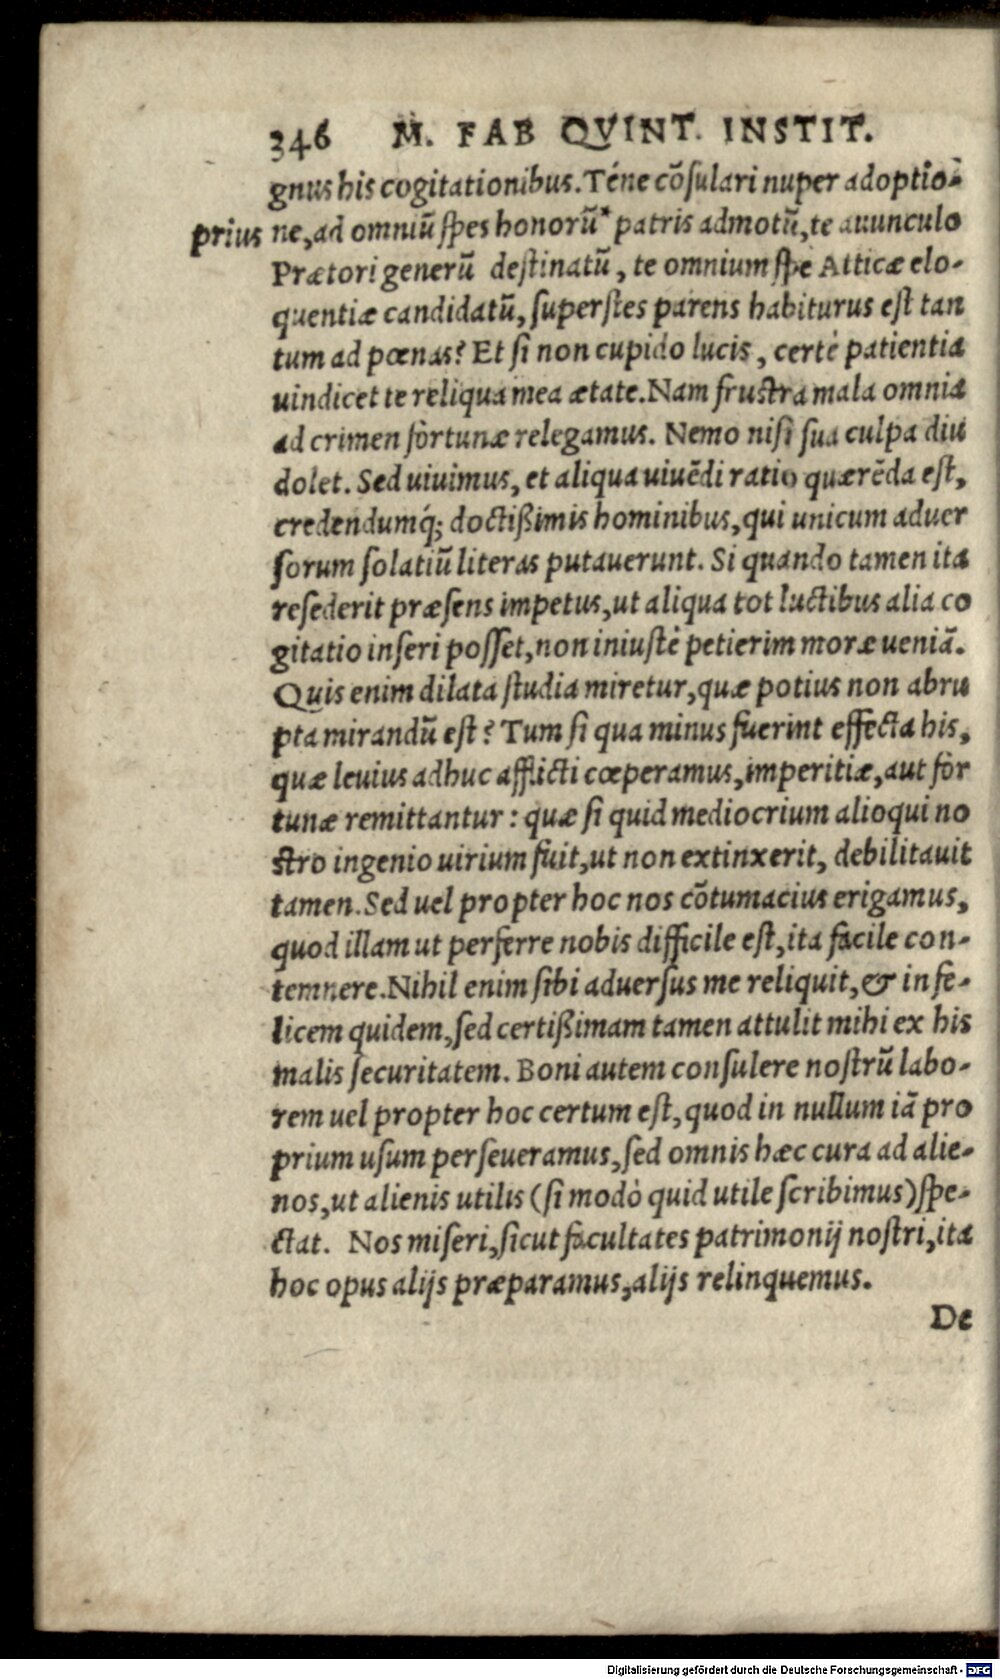 346 M. FAB QVINT. INSTIT.
gnus his cogitationibus. Téne cõsulari nuper adoptio-
prius ne, ad omniũ spes honorũ* patris admotũ, te auunculo
Prætori generũ destinatũ, te omnium spe Atticæ elo-
quentiæ candidatũ, superstes parens habiturus est tan
tum ad pœnas? Et si non cupido lucis, certè patientia
uindicet te reliqua mea ætate. Nam frustra mala omnia
ad crimen fortunæ relegamus. Nemo nisi sua culpa diu
dolet. Sed uiuimus, et aliqua uiuẽdi ratio quærẽda est,
credendumq́; doctißimis hominibus, qui unicum aduer
sorum solatiũ literas putauerunt. Si quando tamen ita
resederit præsens impetus, ut aliqua tot luctibus alia co
gitatio inseri posset, non iniustè petierim moræ ueniã.
Quis enim dilata studia miretur, quæ potius non abru
pta mirandũ est? Tum si qua minus fuerint effecta his,
quæ leuius adhuc afflicti cœperamus, imperitiæ, aut for
tunæ remittantur: quæ si quid mediocrium alioqui no
stro ingenio uirium fuit, ut non extinxerit, debilitauit
tamen. Sed uel propter hoc nos cõtumacius erigamus,
quod illam ut perferre nobis difficile est, ita facile con-
temnere. Nihil enim sibi aduersus me reliquit, & infe-
licem quidem, sed certißimam tamen attulit mihi ex his
malis securitatem. Boni autem consulere nostrũ labo-
rem uel propter hoc certum est, quod in nullum iã pro
prium usum perseueramus, sed omnis hæc cura ad alie-
nos, ut alienis utilis (si modò quid utile scribimus) spe-
ctat. Nos miseri, sicut facultates patrimonij nostri, ita
hoc opus alijs præparamus, alijs relinquemus.
De
Digitalisierung gefördert durch die Deutsche Forschungsgemeinschaft - DFG